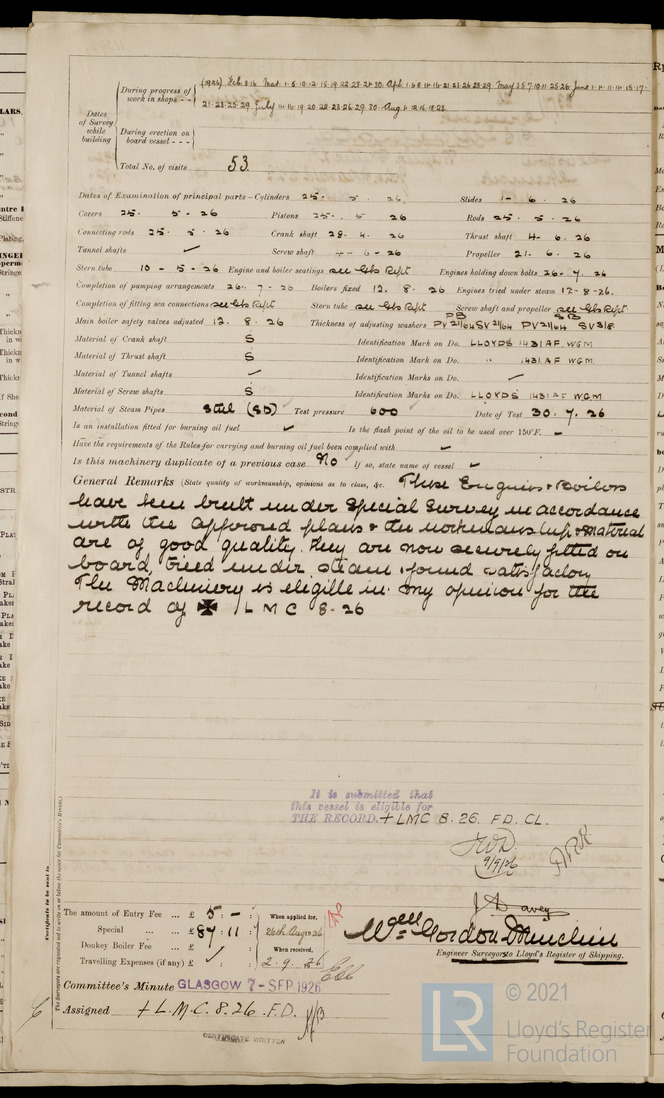 During progress of work in shops - - (1926) Feb. 8.16 Mar. 1.5.10.12.15.19.22.23.24.30. Apl. 1.6.8.14.16.21.23.26.28.29. May 3.5.7.10.11.25.26. June 1.4.11.14.15.17.
21.23.25.29. July 14.16.19.20.22.23.26.29.30. Aug 4.12.16.18.23.
Dates of Survey while building
During erection on board vessel - - -
Total No. of visits 53.
Dates of Examination of principal parts—Cylinders 25. 5. 26. Slides 1- 6. 26
Covers 25. 5 - 26 Pistons 25. 5 26 Rods 25. 5. 26
Connecting rods 25. 5. 26 Crank shaft 28. 4. 26 Thrust shaft 4- 6. 26
Tunnel shafts ✓ Screw shaft 4- 6- 26 Propeller 21. 6. 26
Stern tube 10 - 5 - 26 Engine and boiler seatings see Gls Rept Engines holding down bolts 26. 7. 26
Completion of pumping arrangements 26. 7 - 26 Boilers fixed 12. 8. 26 Engines tried under steam 12-8-26.
Completion of fitting sea connections see Gls Rept Stern tube see Gls Rept Screw shaft and propeller see Gls Rept.
Main boiler safety valves adjusted 12. 8. 26 Thickness of adjusting washers PB PV 21/64 SV 21/64 SB PV 21/64 SV 3/8
Material of Crank shaft S Identification Mark on Do. LLOYDS 1431 AF. WGM
Material of Thrust shaft S Identification Mark on Do. " 1431 AF. WGM.
Material of Tunnel shafts ✓ Identification Marks on Do. ✓
Material of Screw shafts S Identification Marks on Do. LLOYDS 1431 AF WGM.
Material of Steam Pipes Steel (SD) ✓ Test pressure 600 Date of Test 30. 7. 26
Is an installation fitted for burning oil fuel ✓ Is the flash point of the oil to be used over 150°F. -
Have the requirements of the Rules for carrying and burning oil fuel been complied with ✓
Is this machinery duplicate of a previous case No If so, state name of vessel ✓
General Remarks (State quality of workmanship, opinions as to class, &c. These Engines & Boilers
have been built under Special Survey in accordance
with the approved plans & the workmanship & material
are of good quality. They are now securely fitted on
board, tried under steam & found satisfactory
The Machinery is eligible in my opinion for the
record of ✠ LMC 8-26
It is submitted that
this vessel is eligible for
THE RECORD. + LMC 8.26. FD. CL.
9/9/26
ARR
The amount of Entry Fee ... £ 5 : - :
Special ... ... £ 87 : 11 :
Donkey Boiler Fee ... £ : :
Travelling Expenses (if any) £ ✓ : :
When applied for, 26th Aug 1926
When received, 2. 9. 26
J. Davey
Wm Gordon-Munchin
Engineer Surveyors to Lloyd's Register of Shipping.
Committee's Minute GLASGOW 7 - SEP 1926
Assigned + L.M.C. 8.26. F.D.
CERTIFICATE WRITTEN
Certificate to be sent to
The Surveyors are requested not to write on or below the space for Committee's Minute.
LR © 2021
Lloyd's Register
Foundation